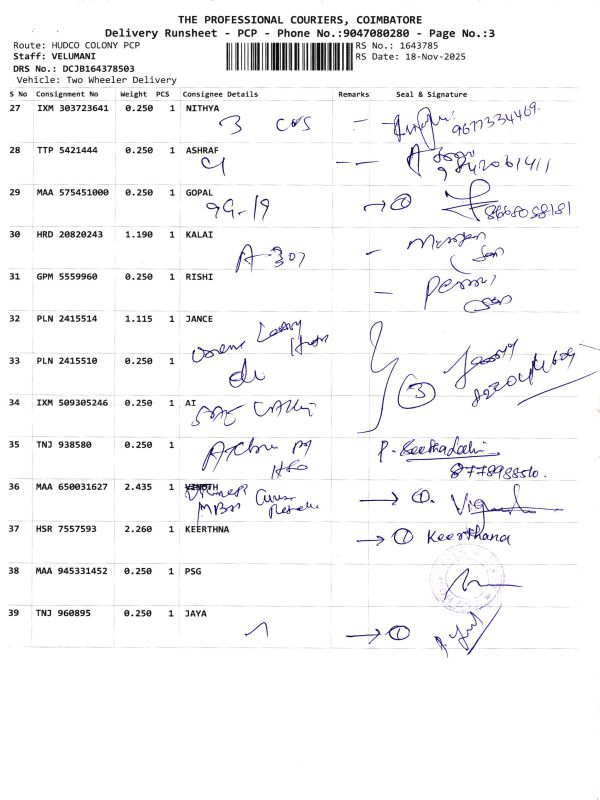 THE PROFESSIONAL COURIERS, COIMBATORE
Delivery Runsheet - PCP - Phone No.:9047080280 - Page No.:3
Route: HUDCO COLONY PCP RS No.: 1643785
Staff: VELUMANI RS Date: 18-Nov-2025
DRS No.: DCJB164378503
Vehicle: Two Wheeler Delivery
S No Consignment No Weight PCS Consignee Details Remarks Seal & Signature
27 IXM 303723641 0.250 1 NITHYA
3
28 TTP 5421444 0.250 1 ASHRAF
9842061411
29 MAA 575451000 0.250 1 GOPAL
9G-19 → 1 8668058181
30 HRD 20820243 1.190 1 KALAI
A-307
31 GPM 5559960 0.250 1 RISHI
32 PLN 2415514 1.115 1 JANCE
33 PLN 2415510 0.250 1
do 3
34 IXM 509305246 0.250 1 AI
35 TNJ 938580 0.250 1
P.
36 MAA 650031627 2.435 1 VINOTH
→ 1.
37 HSR 7557593 2.260 1 KEERTHNA
→ 1 Keerthana
38 MAA 945331452 0.250 1 PSG
39 TNJ 960895 0.250 1 JAYA
→ 1